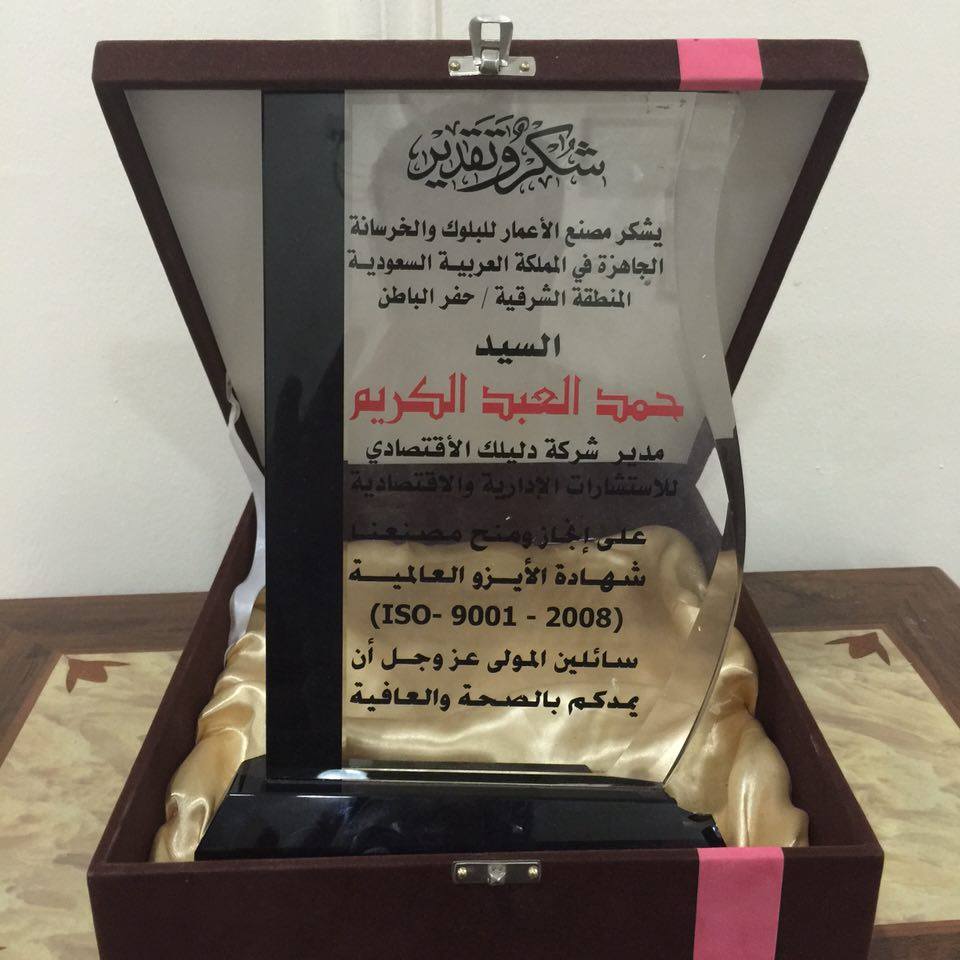 شكر وتقدير
يشكر مصنع الأعمار للبلوك والخرسانة
الجاهزة في المملكة العربية السعودية
المنطقة الشرقية / حفر الباطن
السيد
حمد العبد الكريم
مدير شركة دليلك الأقتصادي
للاستشارات الإدارية والاقتصادية
على إنجاز ومنح مصنعنا
شهادة الأيزو العالمية
(ISO- 9001 - 2008)
سائلين المولى عز وجل أن
يمدكم بالصحة والعافية